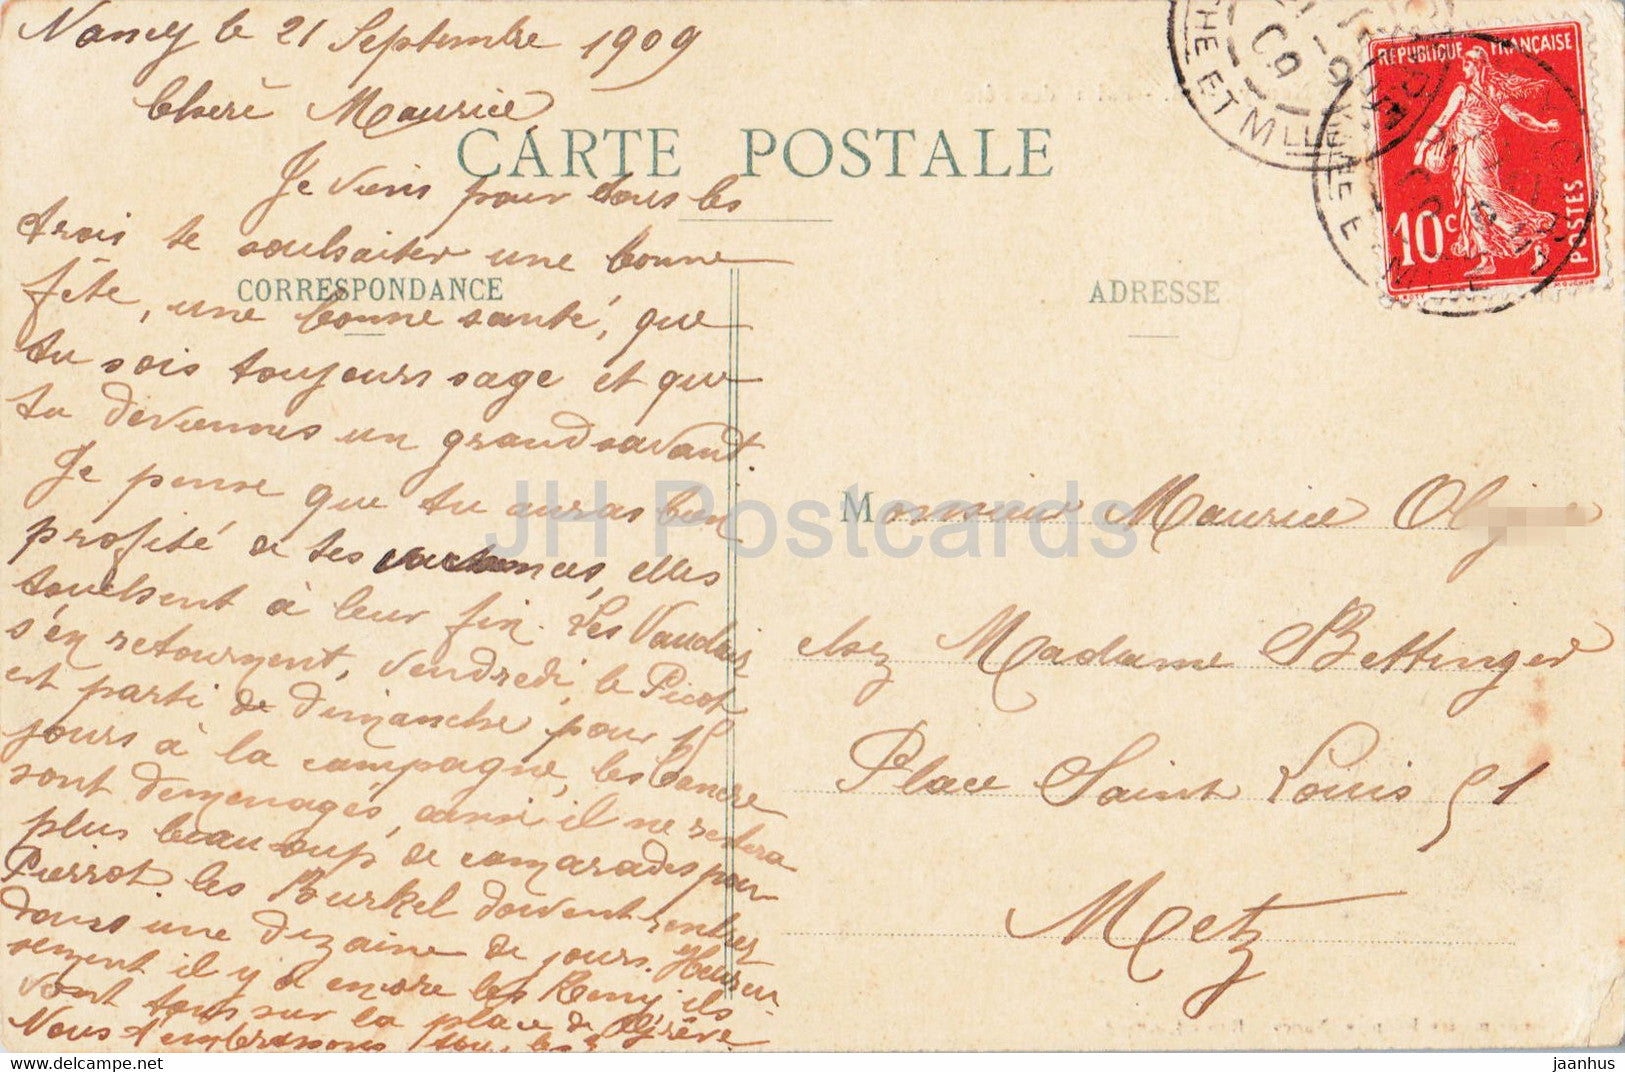 Nancy le 21 Septembre 1909
Cheré Maurice
CARTE POSTALE
Je viens pour tous les
trois te souhaiter une bonne
CORRESPONDANCE
fête, une bonne santé, que
tu sois toujours sage et que
tu deviennes un grand savant.
Je pense que tu auras bien
profité de tes vacances, elles
touchent à leur fin. Les Vaudois
s'en retournent, vendredi, le Picot
est parti de dimanche pour 15
jours à la campagne, les
sont demenagés, ainsi il ne restera
plus beaucoup de camarades pour
Pierrot les Burkel doivent rentrer
dans une dizaine de jours. Heureu
sement il y a encore les Remy, ils
vont tous sur la place de Grève
Nous t'embrassons tous les 3
ADRESSE
Monsieur Maurice
chez Madame Bettinger
Place Saint Louis 51
Metz
REPUBLIQUE FRANÇAISE
10c
POSTES
HE ET M
JH Postcards
www.delcampe.net
jaanhus